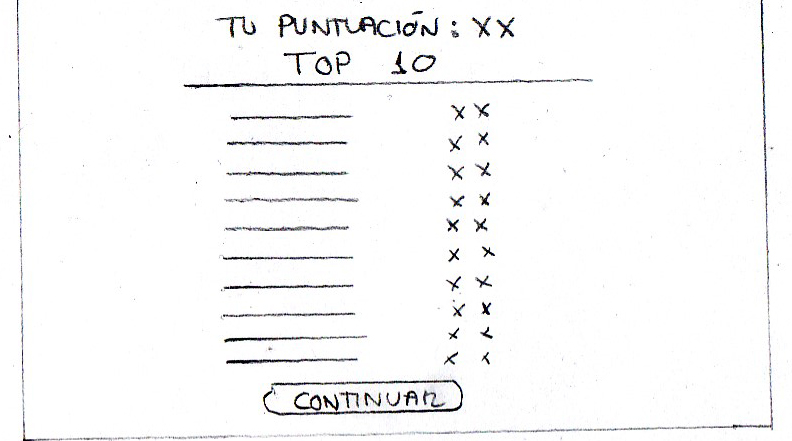 TU PUNTUACIÓN: XX
TOP 10
XX
XX
XX
XX
XX
XX
XX
XX
XX
XX
CONTINUAR